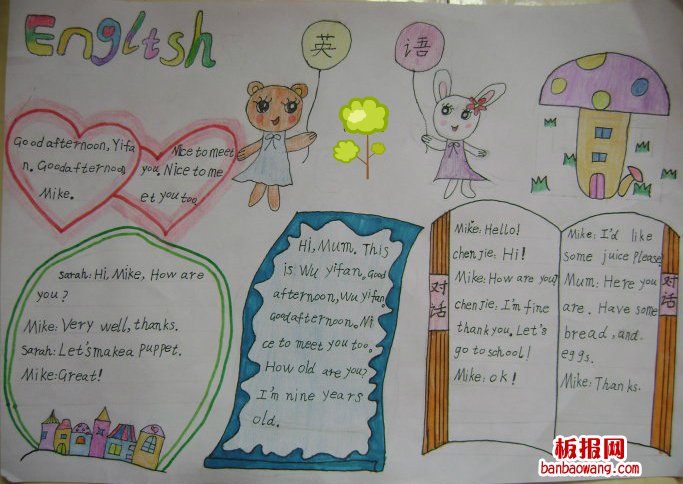 English
英
语
Good afternoon, Yifa
n. Good afternoon,
Mike.
Nice to meet
you. Nice to me
et you too.
Sarah: Hi, Mike, How are
you?
Mike: Very well, thanks.
Sarah: Let's make a puppet.
Mike: Great!
Hi, Mum. This
is Wu yifan. Good
afternoon, Wu yifan.
Good afternoon. Ni
ce to meet you too.
How old are you?
I'm nine years
old.
对话
Mike: Hello!
chen jie: Hi!
Mike: How are you?
chen jie: I'm fine
thank you. Let's
go to school!
Mike: ok!
Mike: I'd like
some juice please.
Mum: Here you
are. Have some
bread, and
eggs.
Mike: Thanks.
对话
板报网
banbaowang.com